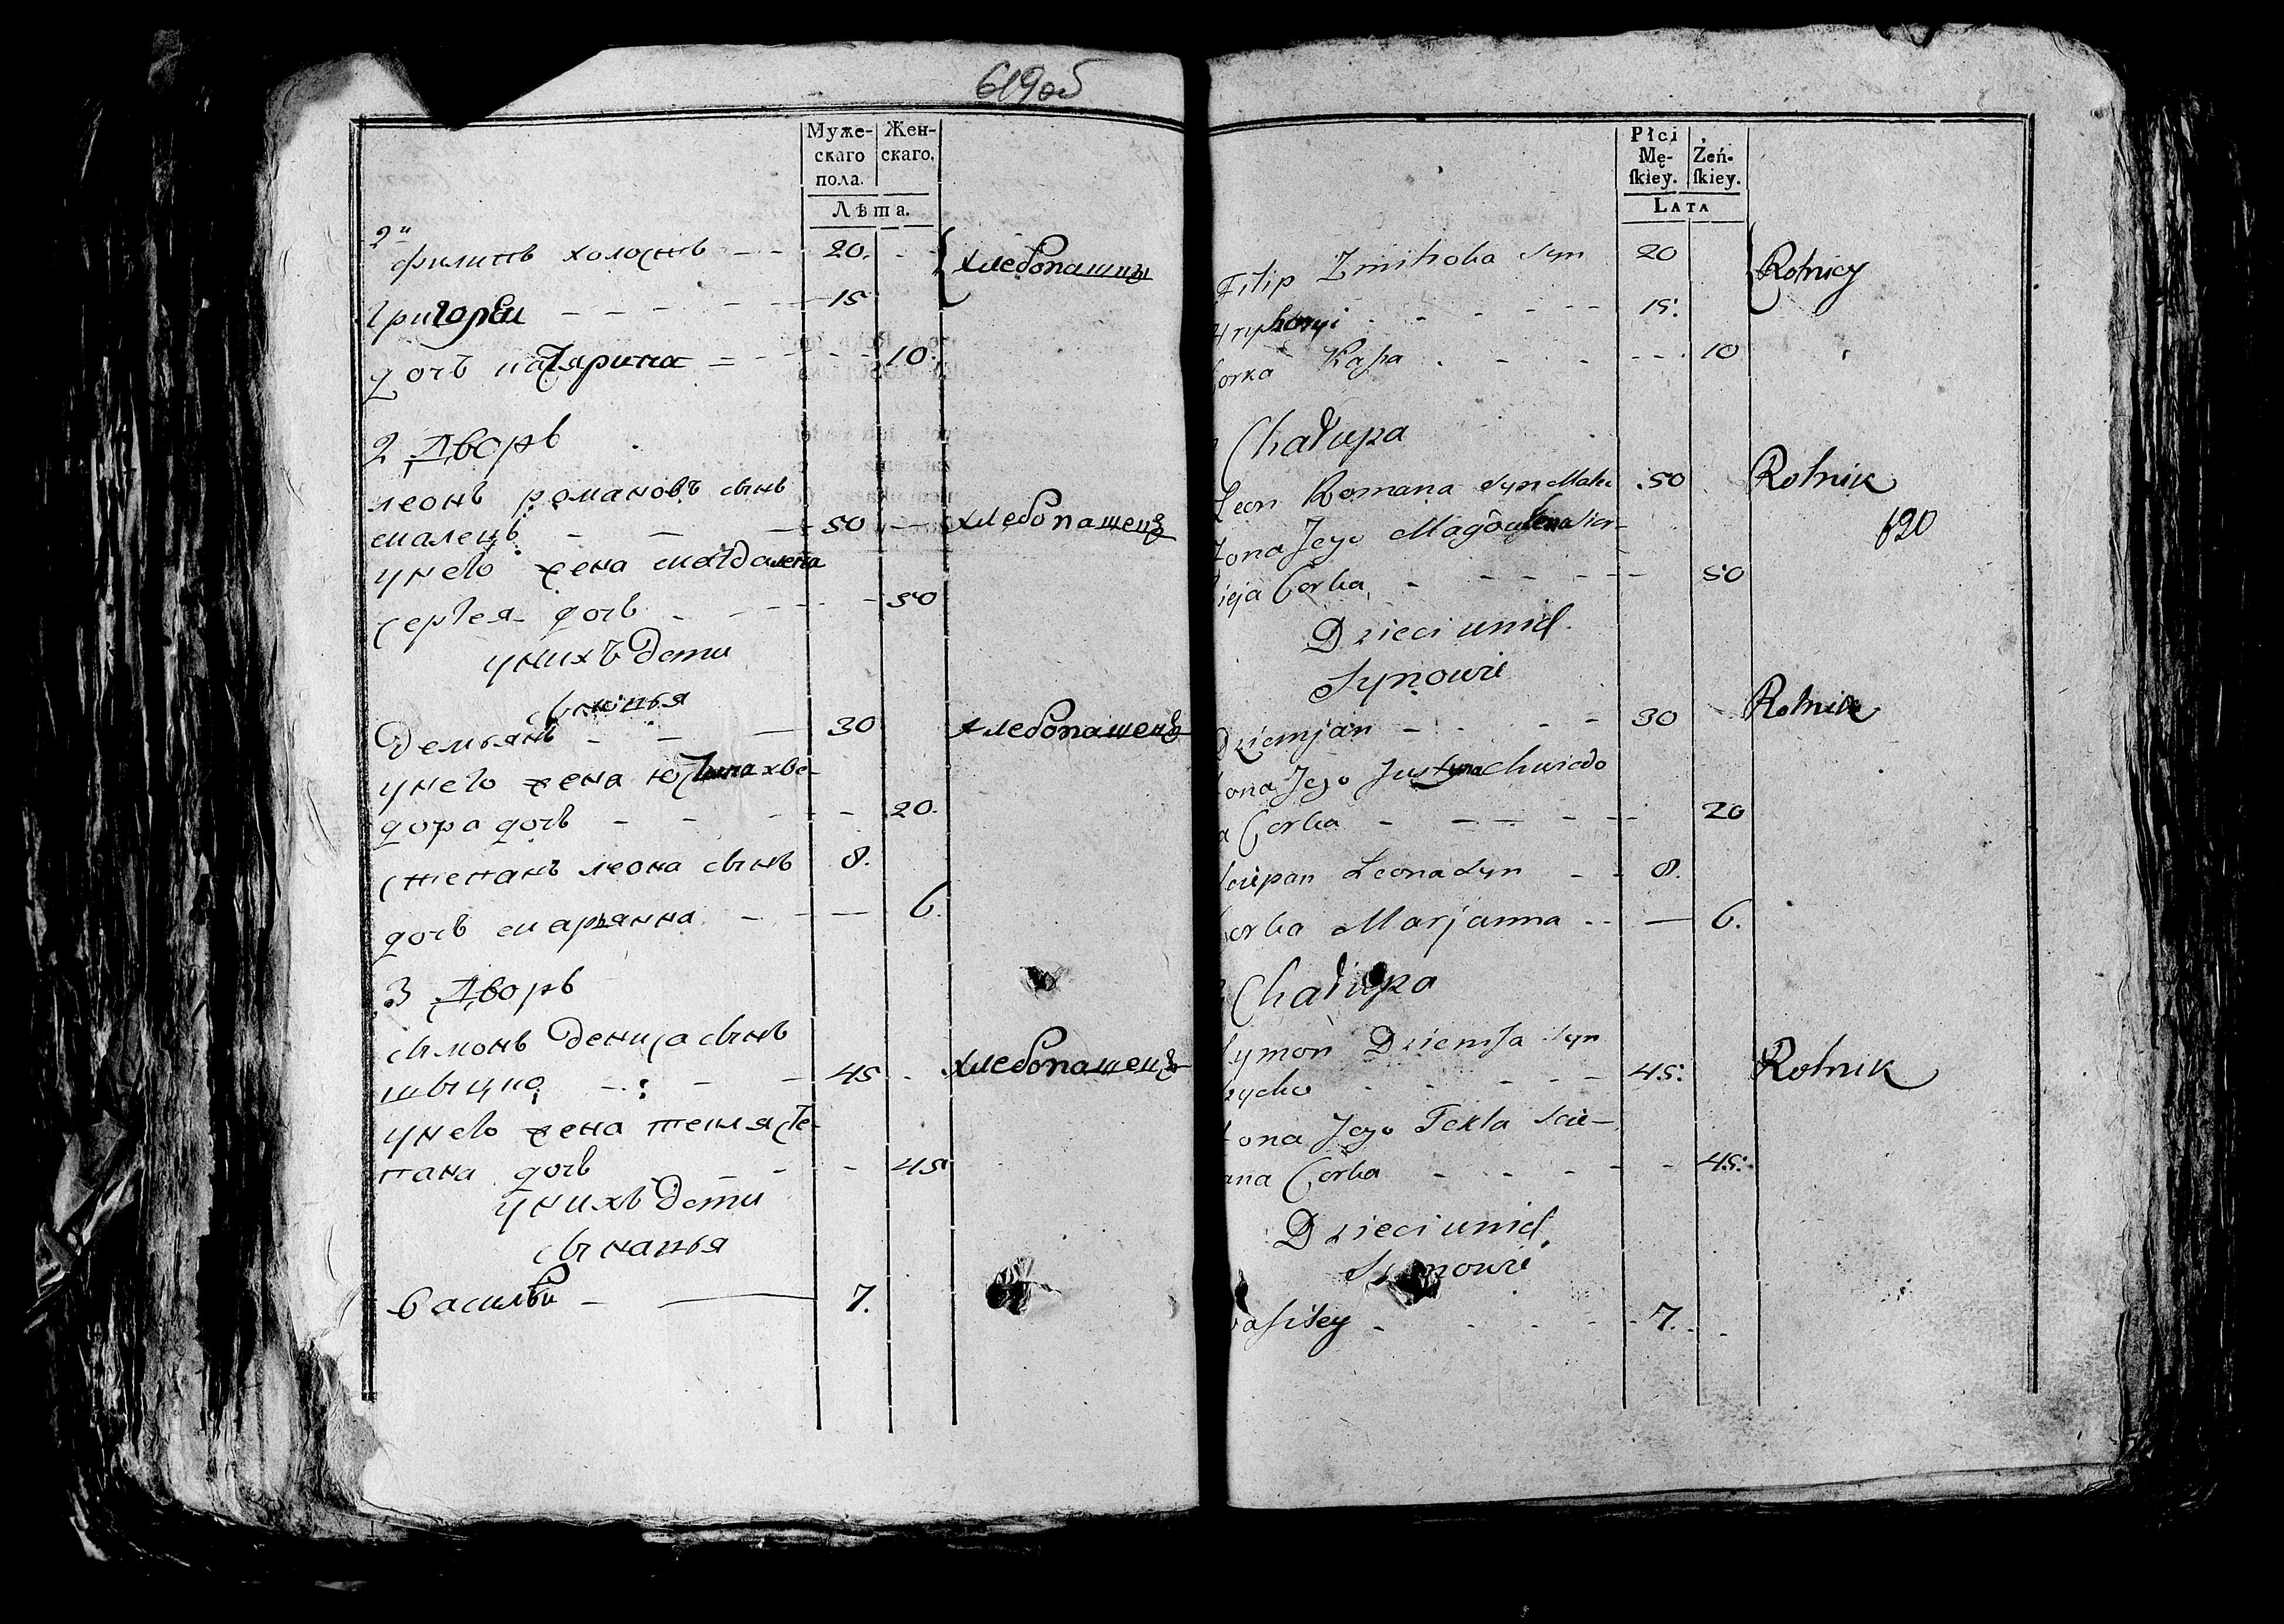 619об
Муже-
скаго
пола.
Жен-
скаго.
Лѣта.
2й
филипъ холостъ - - 20.
хлебопашцы
григорей - - - - 15
дочь катярина - - - 10.
2 дворъ
леонъ романовъ сынъ
малецъ - - - 50 - хлебопашецъ
унего жена магдалена
сергея дочь - - - 50
унихъ дети
сыновья
демьянъ - - - 30 хлебопашецъ
унего жена юстина хве-
дора дочь - - - - 20.
степанъ леона сынъ 8.
дочь марьянна - - - 6.
3 дворъ
сымонъ дениса сынъ
шыцко - - - 45 - хлебопашецъ
унего жена текля сте-
пана дочь - - - 45
унихъ дети
сыновья
василей - - 7.
Płci
Mę-
ſkiey.
Żeń-
ſkiey.
LATA
Filip Zmitroka Syn 20
Rolnicy
hryhoryi - - - - 15.
Corka Kaſia - - - - 10
Chałupa
Leon Romana Syn Malec 50 Rolnik
620
Żona Jego Magdalena Sier-
ieja Corka - - - - 50
Dzieci unich
Synowie
Dziemjan - - - 30 Rolnik
ona Jego Justyna Chwiedo
a Corka - - - - 20
Sciepan Leona Syn - - 8.
Corka Marjanna - - - 6.
Chałupa
Symon Dzienisa Syn
zycko - - - 45. Rolnik
ona Jego Tekla Scie-
ana Corka - - - - 45.
Dzieci unich
Synowie
Waſiley - - - - 7.